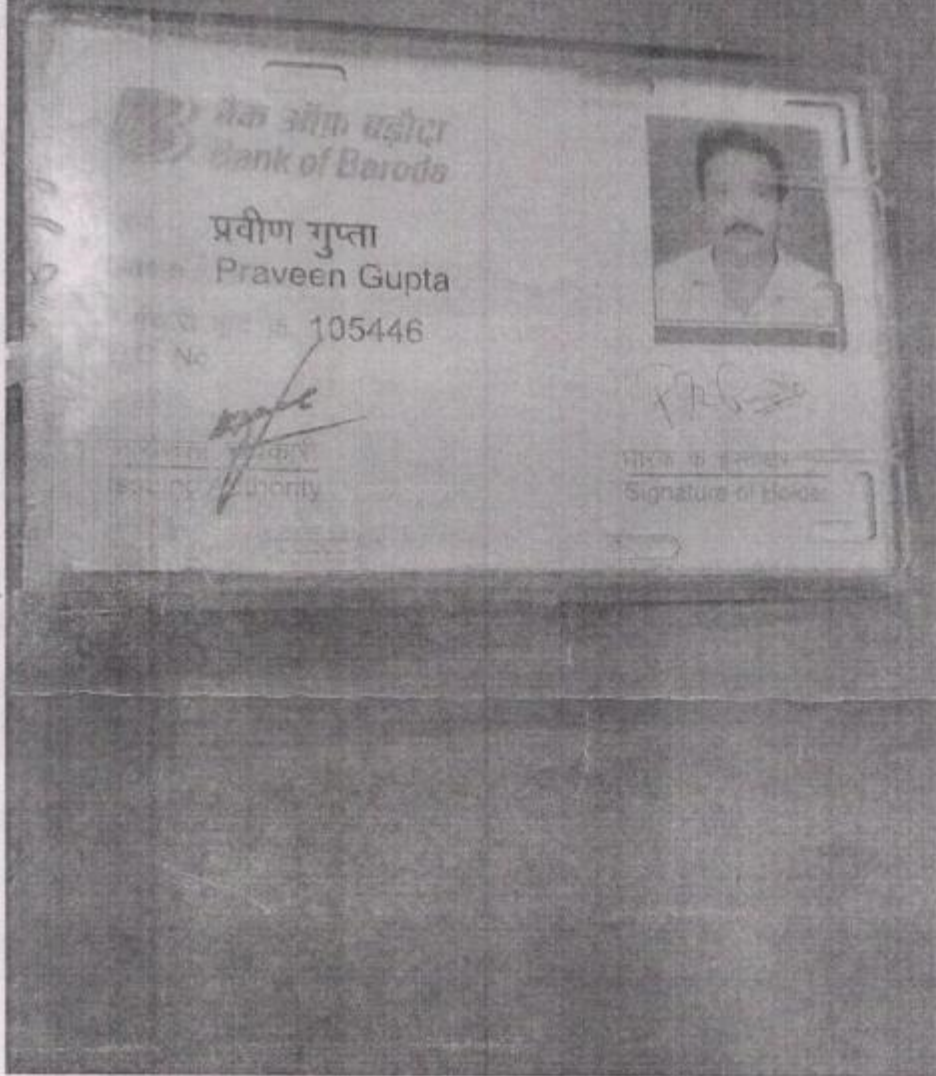 बैंक ऑफ़ बड़ौदा
Bank of Baroda
प्रवीण गुप्ता
Praveen Gupta
105446
No
Issuing Authority
धारक के हस्ताक्षर
Signature of Holder